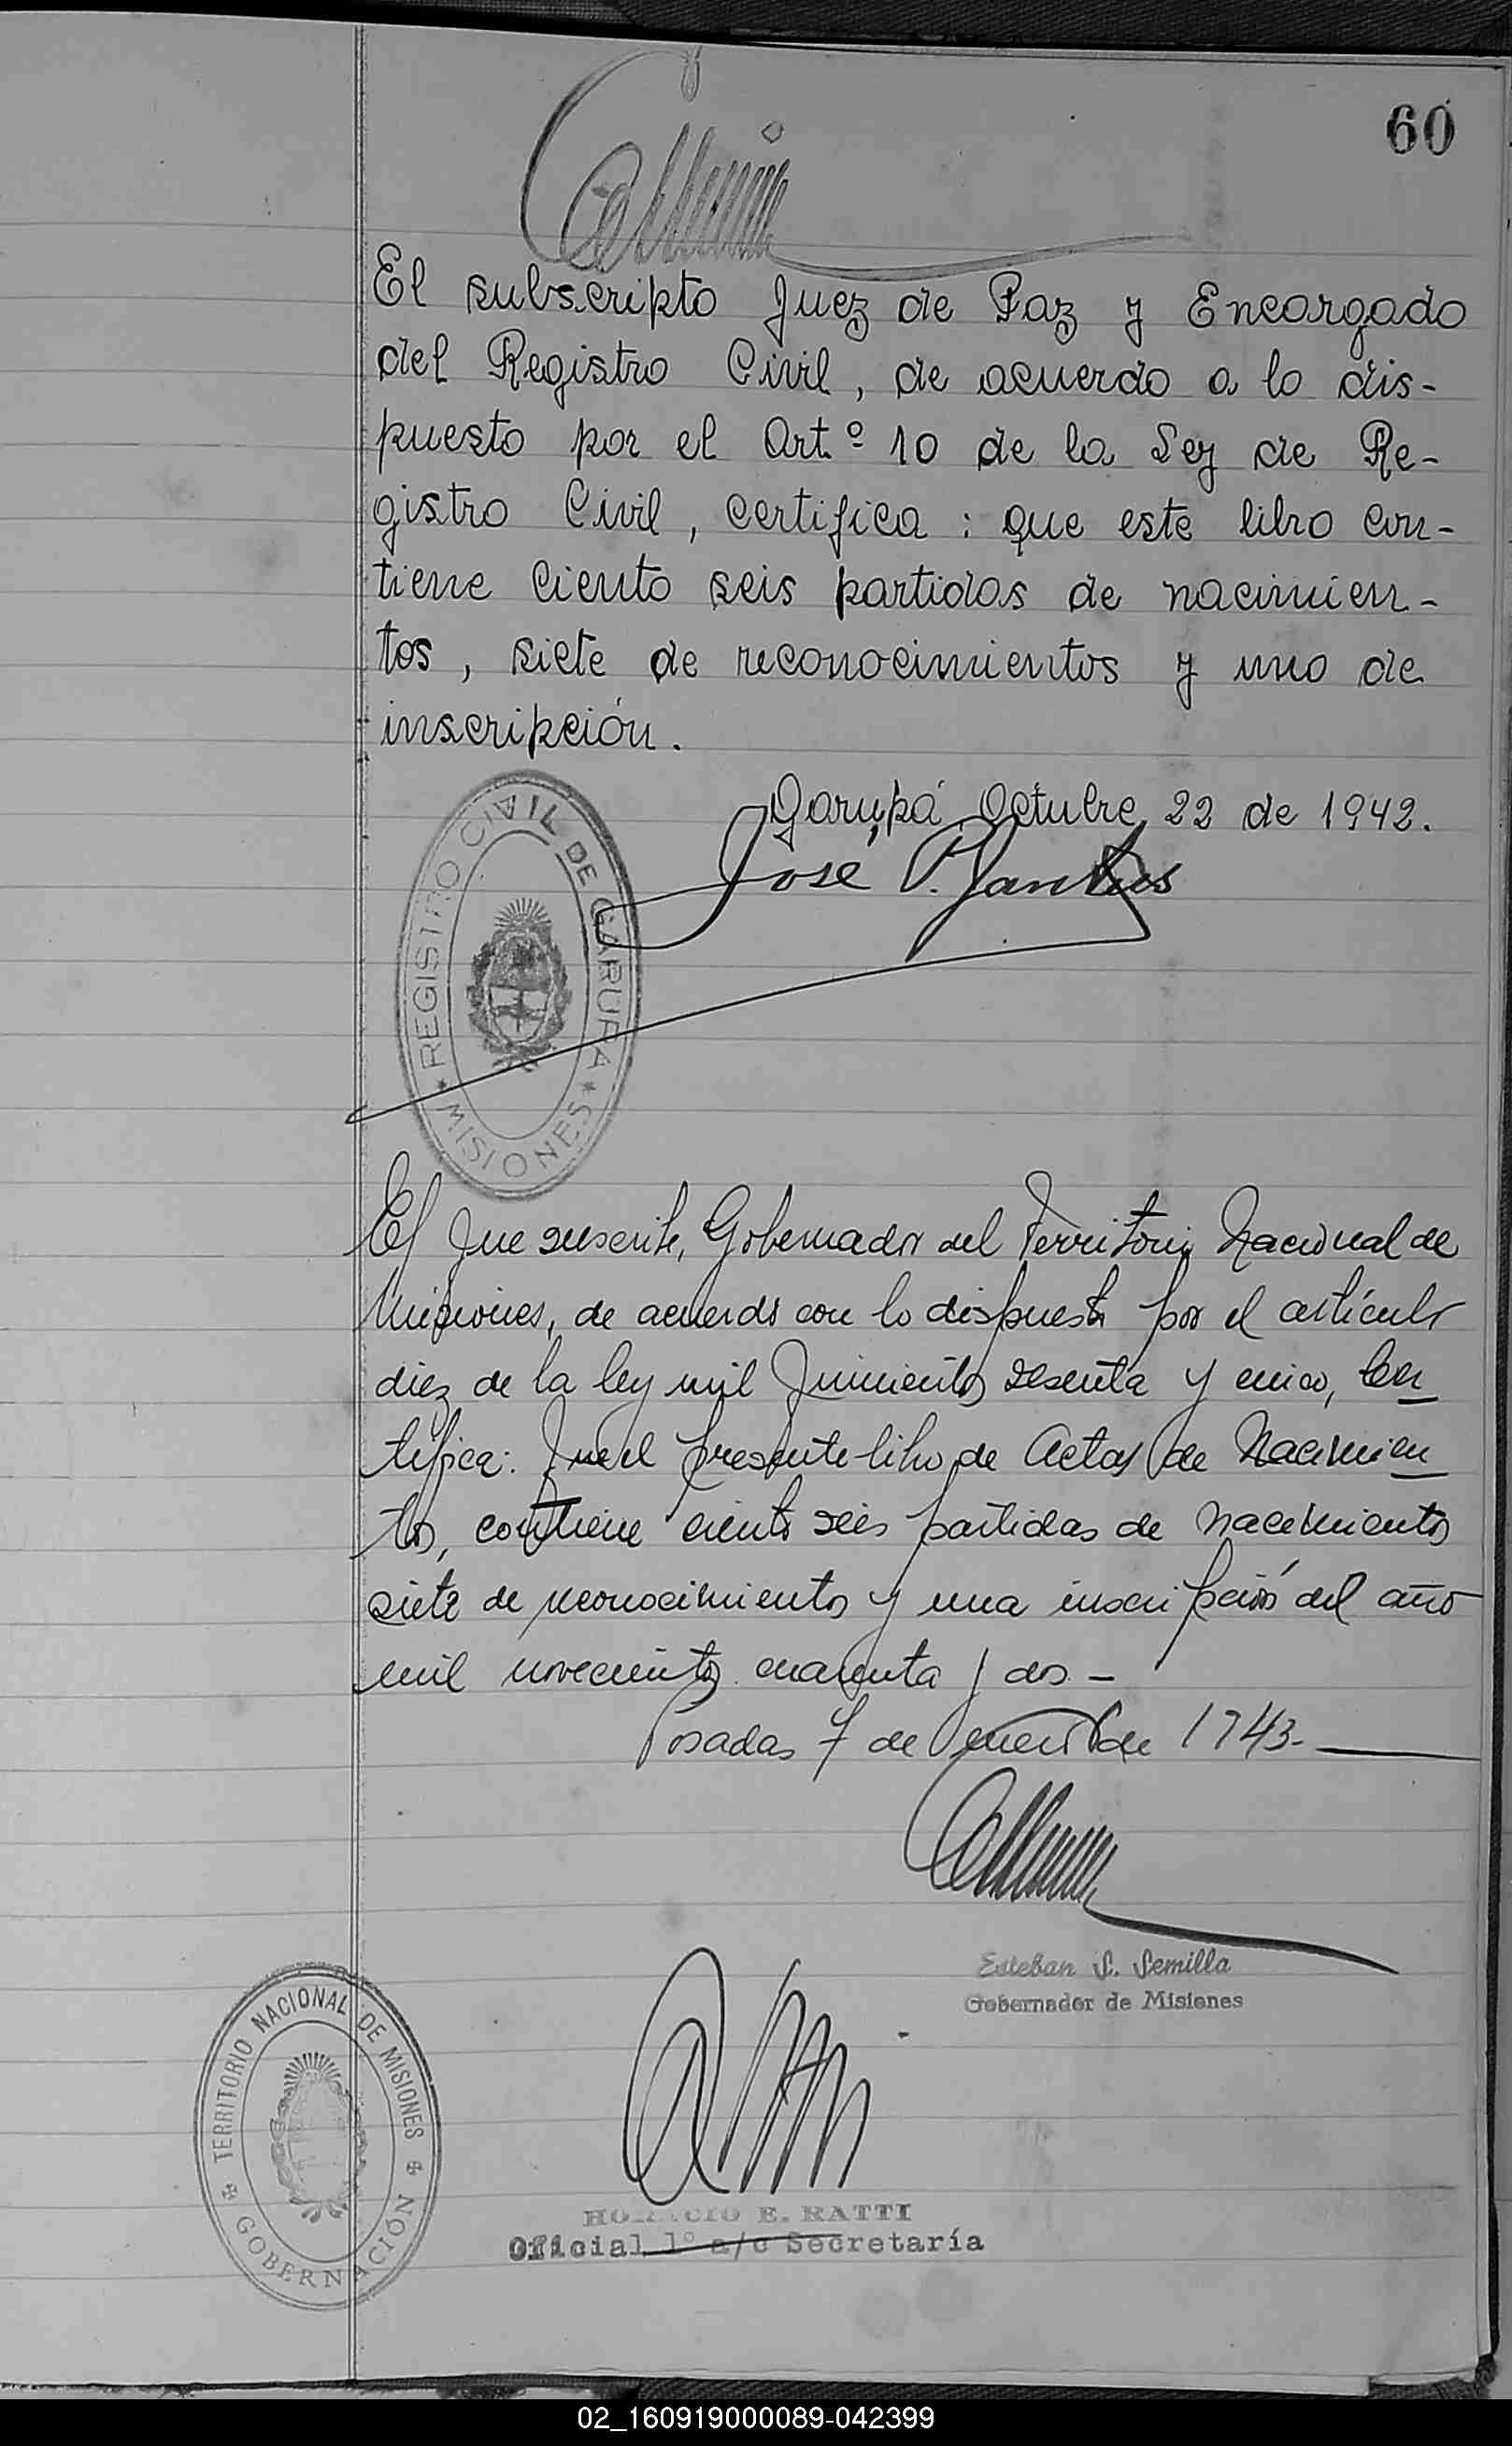 60
El subscripto Juez de Paz y Encargado
del Registro Civil, de acuerdo a lo dis-
puesto por el Art.º 10 de la Ley de Re-
gistro Civil, certifica: que este libro con-
tiene ciento seis partidas de nacimien-
tos, siete de reconocimientos y uno de
inscripción.
Garupá, Octubre 22 de 1942.
José P.
REGISTRO CIVIL DE GARUPA
* MISIONES *
El que suscribe, Gobernador del Territorio Nacional de
Misiones, de acuerdo con lo dispuesto por el artículo
diez de la ley mil quinientos sesenta y cinco, Cer
tifica: Que el presente libro de Actas de Nacimien
tos, contiene ciento seis partidas de nacimientos
siete de reconocimientos y una inscripción del año
mil novecientos cuarenta y dos -
Posadas 7 de enero de 1943.
Esteban S. Semilla
Gobernador de Misiones
TERRITORIO NACIONAL DE MISIONES
GOBERNACIÓN
HORACIO E. RATTI
Oficial 1º a/c Secretaría
02_160919000089-042399